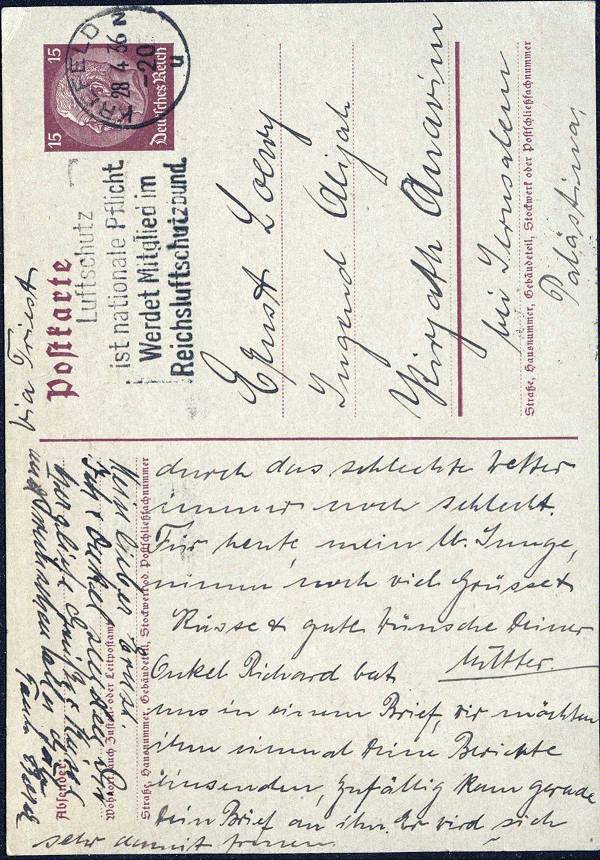 15
15
Deutsches Reich
KREFELD
28.4.36
-20
u
Luftschutz
ist nationale Pflicht
Werdet Mitglied im
Reichsluftschutzbund
Postkarte
Via Triest
Ernst Loewy
Jugend Alijah
Kirjath Anavim
bei Jerusalem
Straße, Hausnummer, Gebäudeteil, Stockwerk oder Postschließfachnummer
Palästina
Absender:
Wohnort, auch Zustell- oder Leitpostamt
Straße, Hausnummer, Gebäudeteil, Stockwerk od. Postschließfachnummer
Mein lieber Ernst
herzliche Grüße & Küsse
durch das schlechte Wetter
immer noch schlecht.
Für heute, mein lb. Junge,
nimm noch viel Grüsse &
Küsse & gute Wünsche Deiner
Mutter.
Onkel Richard bat
uns in einem Brief, wir möchten
ihm einmal Deine Berichte
einsenden, zufällig kam gerade
Dein Brief an ihn. Er wird sich
sehr damit freuen.